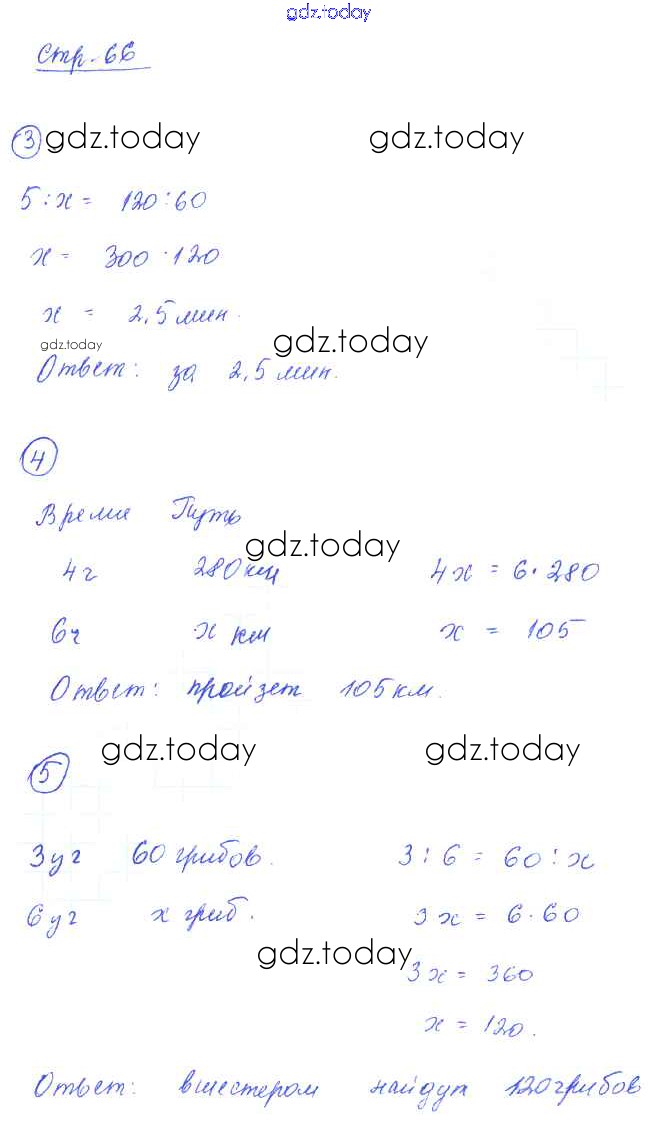 gdz.today
Стр. 66
3 gdz.today gdz.today
5 : x = 120 : 60
x = 300 · 120
x = 2,5 мин.
gdz.today gdz.today
Ответ: за 2,5 мин.
4
Время Путь
gdz.today
4ч 280км 4x = 6 · 280
6ч x км x = 105
Ответ: пройзет 105км.
gdz.today gdz.today
5
3уг 60 грибов. 3 : 6 = 60 : x
6уг x гриб. 3x = 6 · 60
gdz.today
3x = 360
x = 120.
Ответ: вшестером найдут 120 грибов